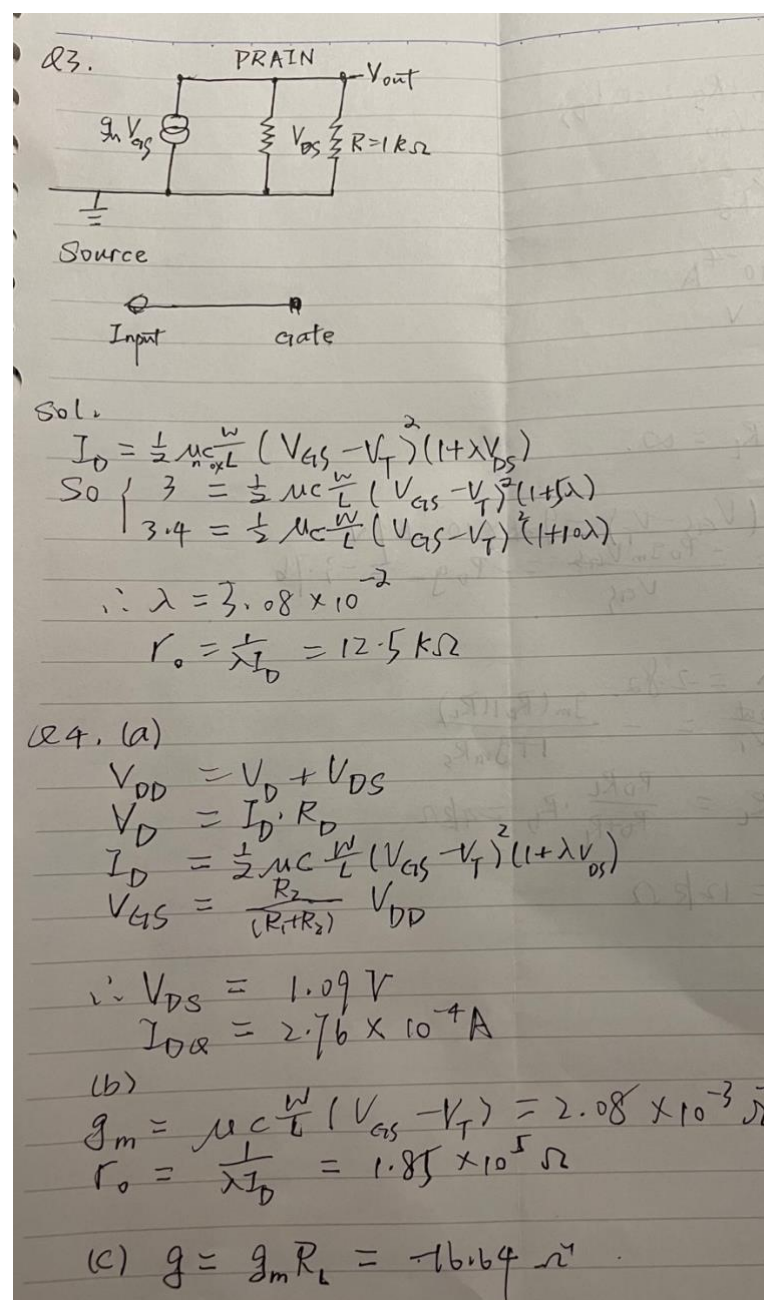 Q3.
PRAIN
Vout
gₘ V_GS
V_DS R=1kΩ
Source
Input Gate
Sol.
I_D = 1/2 μₙC_ox W/L (V_GS - V_T)²(1+λV_DS)
So { 3 = 1/2 μC W/L (V_GS - V_T)²(1+5λ)
3.4 = 1/2 μC W/L (V_GS - V_T)²(1+10λ)
∴ λ = 3.08 × 10⁻²
r₀ = 1/λI_D = 12.5 KΩ
Q4. (a)
V_DD = V_D + V_DS
V_D = I_D · R_D
I_D = 1/2 μC W/L (V_GS - V_T)²(1+λV_DS)
V_GS = R₂/(R₁+R₂) V_DD
∴ V_DS = 1.09 V
I_DQ = 2.76 × 10⁻⁴ A
(b)
gₘ = μC W/L (V_GS - V_T) = 2.08 × 10⁻³
r₀ = 1/λI_D = 1.85 × 10⁵ Ω
(c) g = gₘ R_L = -16.64 Ω⁻¹.